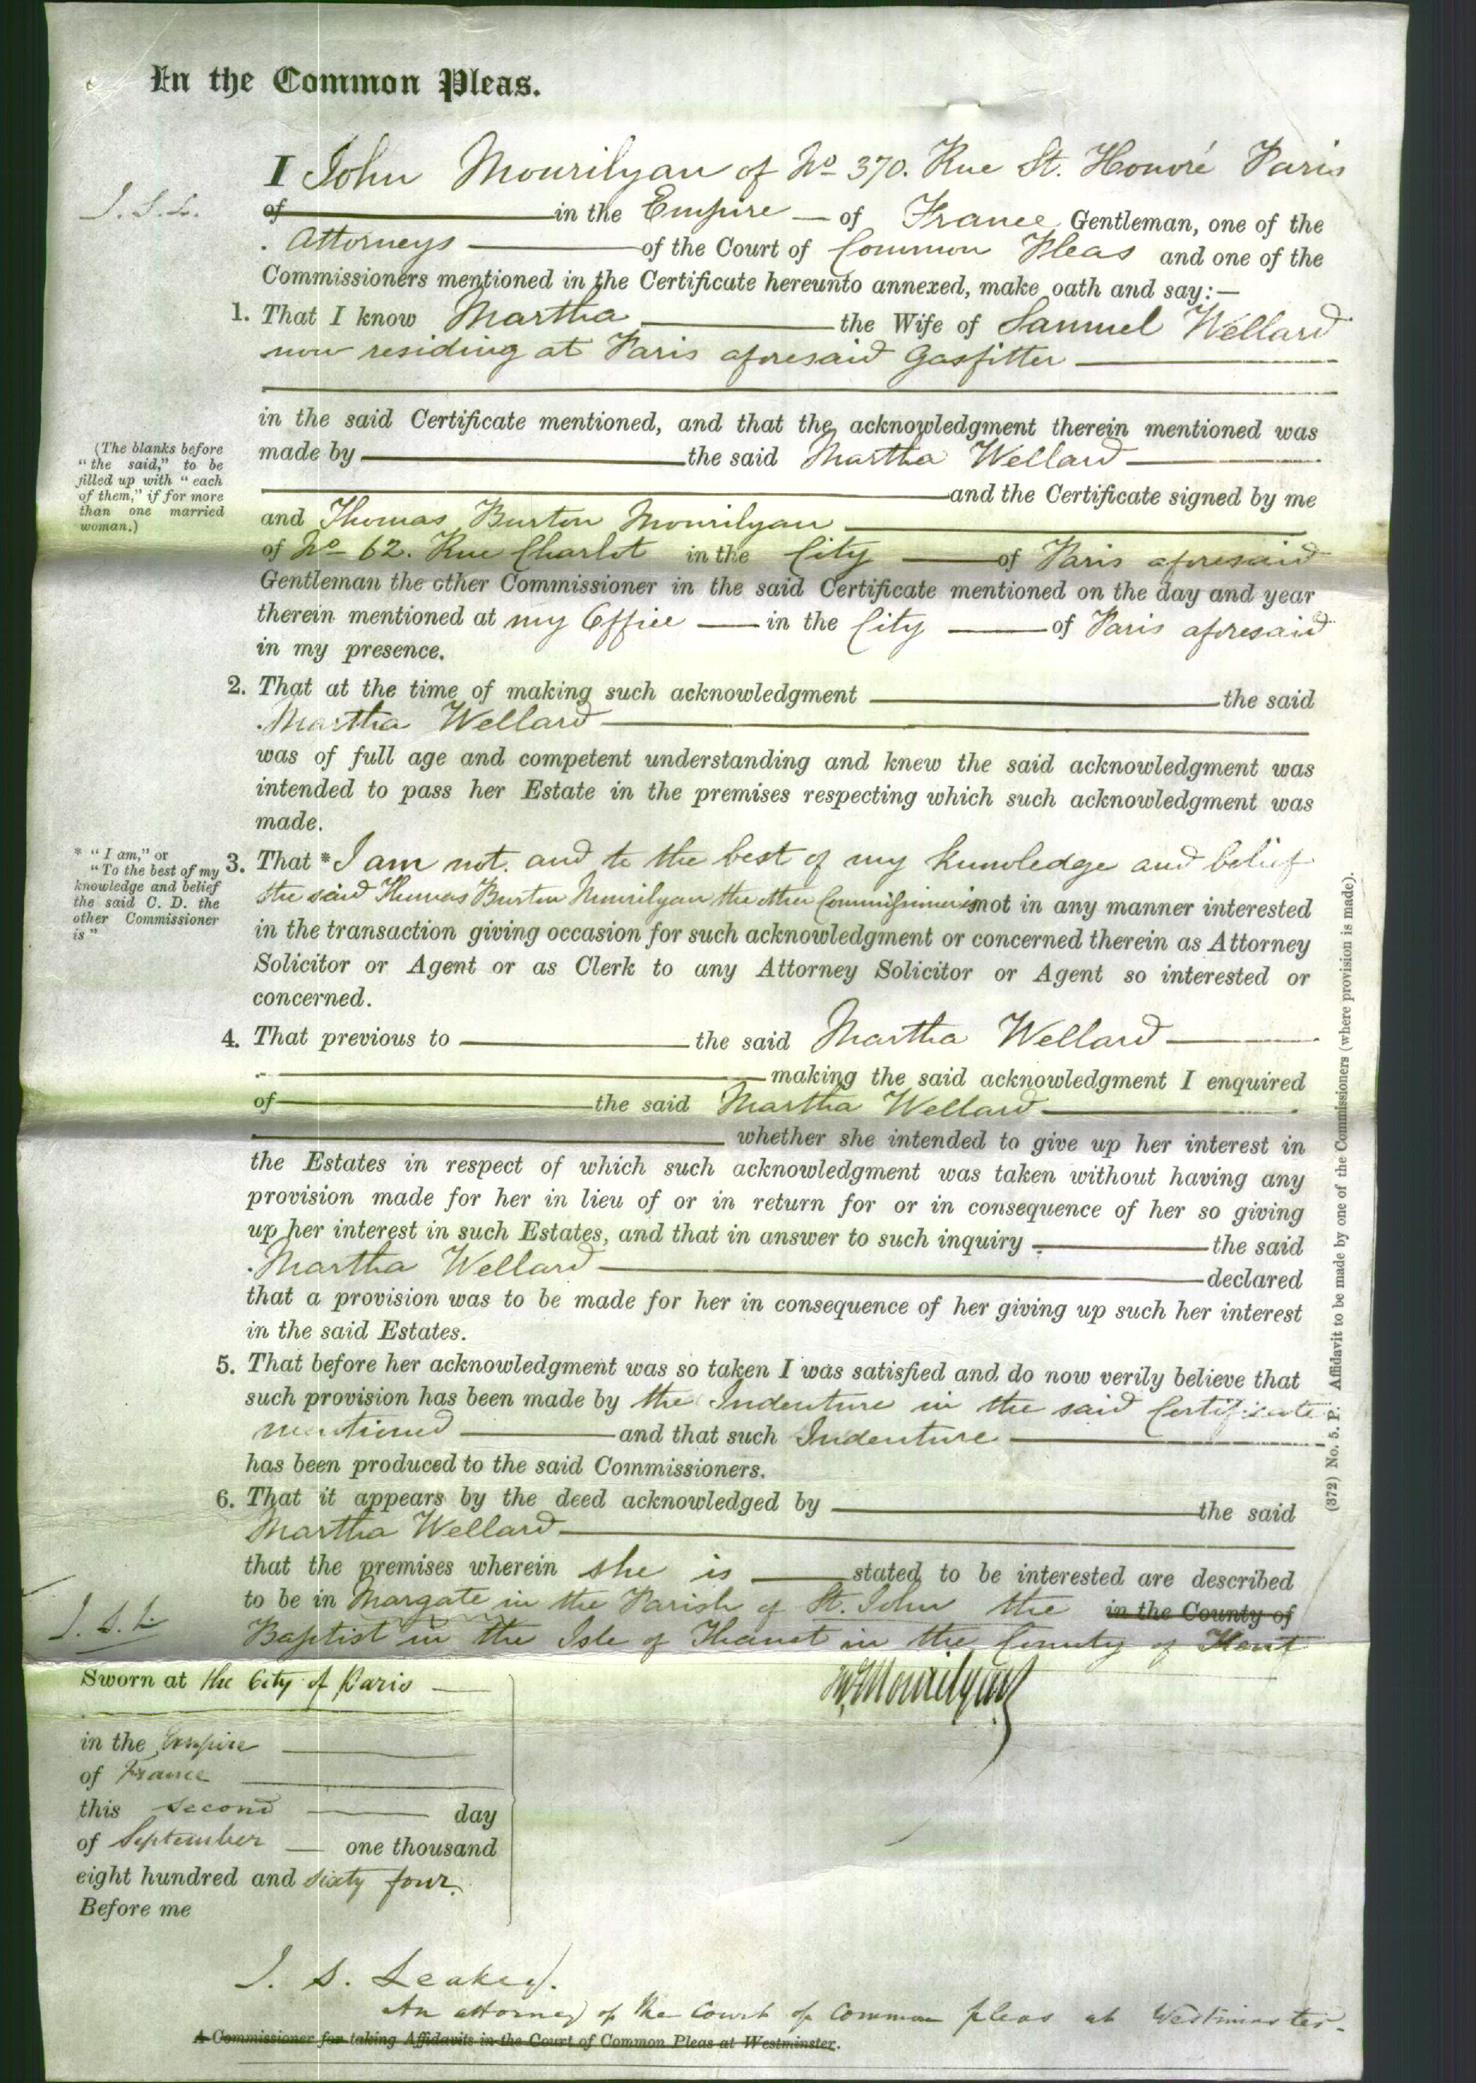 In the Common Pleas.
I John Mourilyan of No 370. Rue St. Honoré Paris
J. S. L.
of in the Empire of France Gentleman, one of the
Attorneys of the Court of Common Pleas and one of the
Commissioners mentioned in the Certificate hereunto annexed, make oath and say:—
1. That I know Martha the Wife of Samuel Wellard
now residing at Paris aforesaid Gasfitter
in the said Certificate mentioned, and that the acknowledgment therein mentioned was
(The blanks before
"the said," to be
filled up with "each
of them," if for more
than one married
woman.)
made by the said Martha Wellard
and the Certificate signed by me
and Thomas Burton Mourilyan
of No 62. Rue Charlot in the City of Paris aforesaid
Gentleman the other Commissioner in the said Certificate mentioned on the day and year
therein mentioned at my Office in the City of Paris aforesaid
in my presence.
2. That at the time of making such acknowledgment the said
Martha Wellard
was of full age and competent understanding and knew the said acknowledgment was
intended to pass her Estate in the premises respecting which such acknowledgment was
made.
* "I am," or
"To the best of my
knowledge and belief
the said C. D. the
other Commissioner
is"
3. That * I am not. and to the best of my knowledge and belief
the said Thomas Burton Mourilyan the other Commissioner is not in any manner interested
in the transaction giving occasion for such acknowledgment or concerned therein as Attorney
Solicitor or Agent or as Clerk to any Attorney Solicitor or Agent so interested or
concerned.
4. That previous to the said Martha Wellard
making the said acknowledgment I enquired
of the said Martha Wellard
whether she intended to give up her interest in
the Estates in respect of which such acknowledgment was taken without having any
provision made for her in lieu of or in return for or in consequence of her so giving
up her interest in such Estates, and that in answer to such inquiry the said
Martha Wellard declared
that a provision was to be made for her in consequence of her giving up such her interest
in the said Estates.
5. That before her acknowledgment was so taken I was satisfied and do now verily believe that
such provision has been made by the Indenture in the said Certificate
mentioned and that such Indenture
has been produced to the said Commissioners.
6. That it appears by the deed acknowledged by the said
Martha Wellard
that the premises wherein she is stated to be interested are described
to be in Margate in the Parish of St. John the in the County of
J. S. L.
Baptist in the Isle of Thanet in the County of Kent
(372) No. 5. P. Affidavit to be made by one of the Commissioners (where provision is made).
Sworn at the City of Paris
Mourilyan
in the Empire
of France
this second day
of September one thousand
eight hundred and sixty four.
Before me
J. S. Leakey.
An attorney of the Court of Common pleas at Westminster.
A Commissioner for taking Affidavits in the Court of Common Pleas at Westminster.